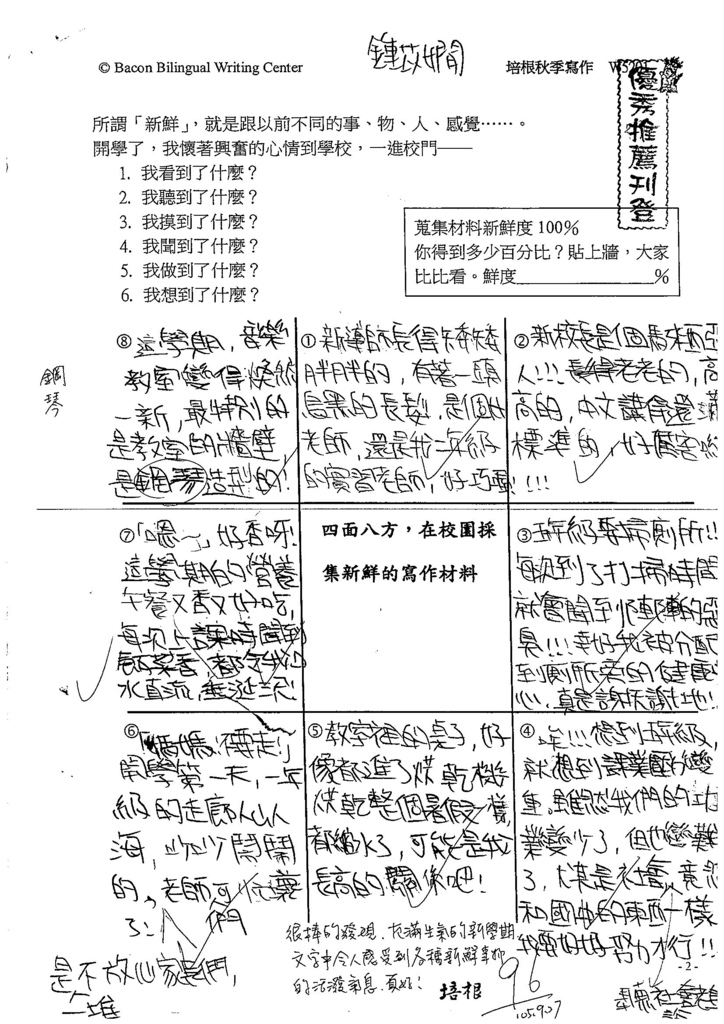 © Bacon Bilingual Writing Center
培根秋季寫作
優秀推薦刊登
所謂「新鮮」,就是跟以前不同的事、物、人、感覺……。
開學了,我懷著興奮的心情到學校,一進校門──
1. 我看到了什麼?
2. 我聽到了什麼?
3. 我摸到了什麼?
4. 我聞到了什麼?
5. 我做到了什麼?
6. 我想到了什麼?
蒐集材料新鮮度 100%
你得到多少百分比?貼上牆,大家
比比看。鮮度%
⑧ 這學期,音樂
教室變得煥然
一新,最特別的
是教室的牆壁
是鋼琴造型的!
鋼琴
① 新導師長得矮矮
胖胖的,有著一頭
烏黑的長髮,是個
老師,還是我二年級
的實習老師,好巧
② 新校長是個馬來西亞
人!!!長得老老的,高
高的,中文講得還滿
標準的,好厲害喲
!!!
⑦「嗯~」好香呀!
這學期的營養
午餐又香又好吃,
每次上課時聞到
飯菜香,都令我口
水直流,垂涎三尺!
四面八方,在校園採
集新鮮的寫作材料
③ 五年級要掃廁所!!
每次到了打掃時間
就會聞到陣陣的惡
臭!!!幸好我被分配
到廁所旁的健康
心,真是謝天謝地!
⑥「媽媽不要走!」
開學第一天,一年
級的走廊人山人
海,吵吵鬧鬧
的,老師可忙壞
了!
們
是不放心家長們,
一堆
⑤ 教室裡的桌子,好
像都進了烘乾機
烘乾整個暑假一樣,
都縮水了,可能是我
長高的關係吧!
④ 唉!!!想到五年級,
就想到課業壓力變
重,雖然我們的功
課變少了,但也變難
了,尤其是社會,竟然
和國中的東西一樣
我要好好努力才行!!!
很棒的發現,充滿生氣的新學期
文字中令人感受到各種新鮮事物
的活潑氣息,真好!
培根
96
105.9.07
-2-